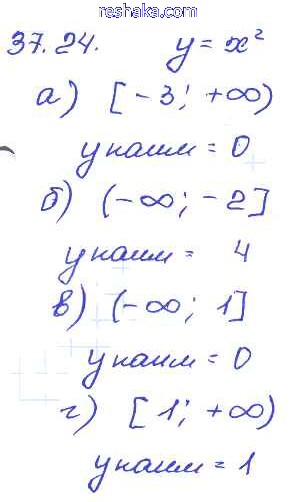 reshaka.com
37.24. y = x²
а) [-3; +∞)
y наим = 0
б) (-∞; -2]
y наим = 4
в) (-∞; 1]
y наим = 0
г) [1; +∞)
y наим = 1